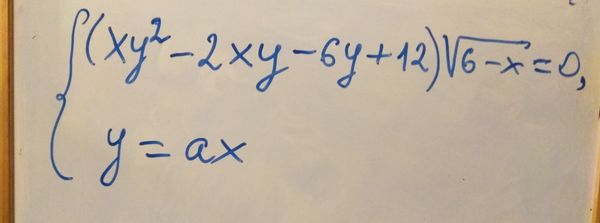 (xy² − 2xy − 6y + 12)√6−x = 0,
y = ax